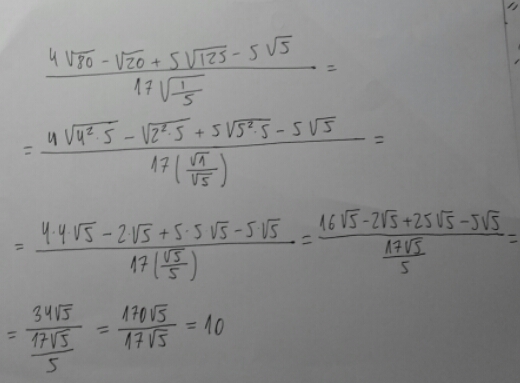 (4√80 − √20 + 5√125 − 5√5) / (17√(1/5)) =
= (4√(4²·5) − √(2²·5) + 5√(5²·5) − 5√5) / (17(√1/√5)) =
= (4·4√5 − 2·√5 + 5·5√5 − 5·√5) / (17(√5/5)) = (16√5 − 2√5 + 25√5 − 5√5) / (17√5/5) =
= 34√5 / (17√5/5) = 170√5 / 17√5 = 10